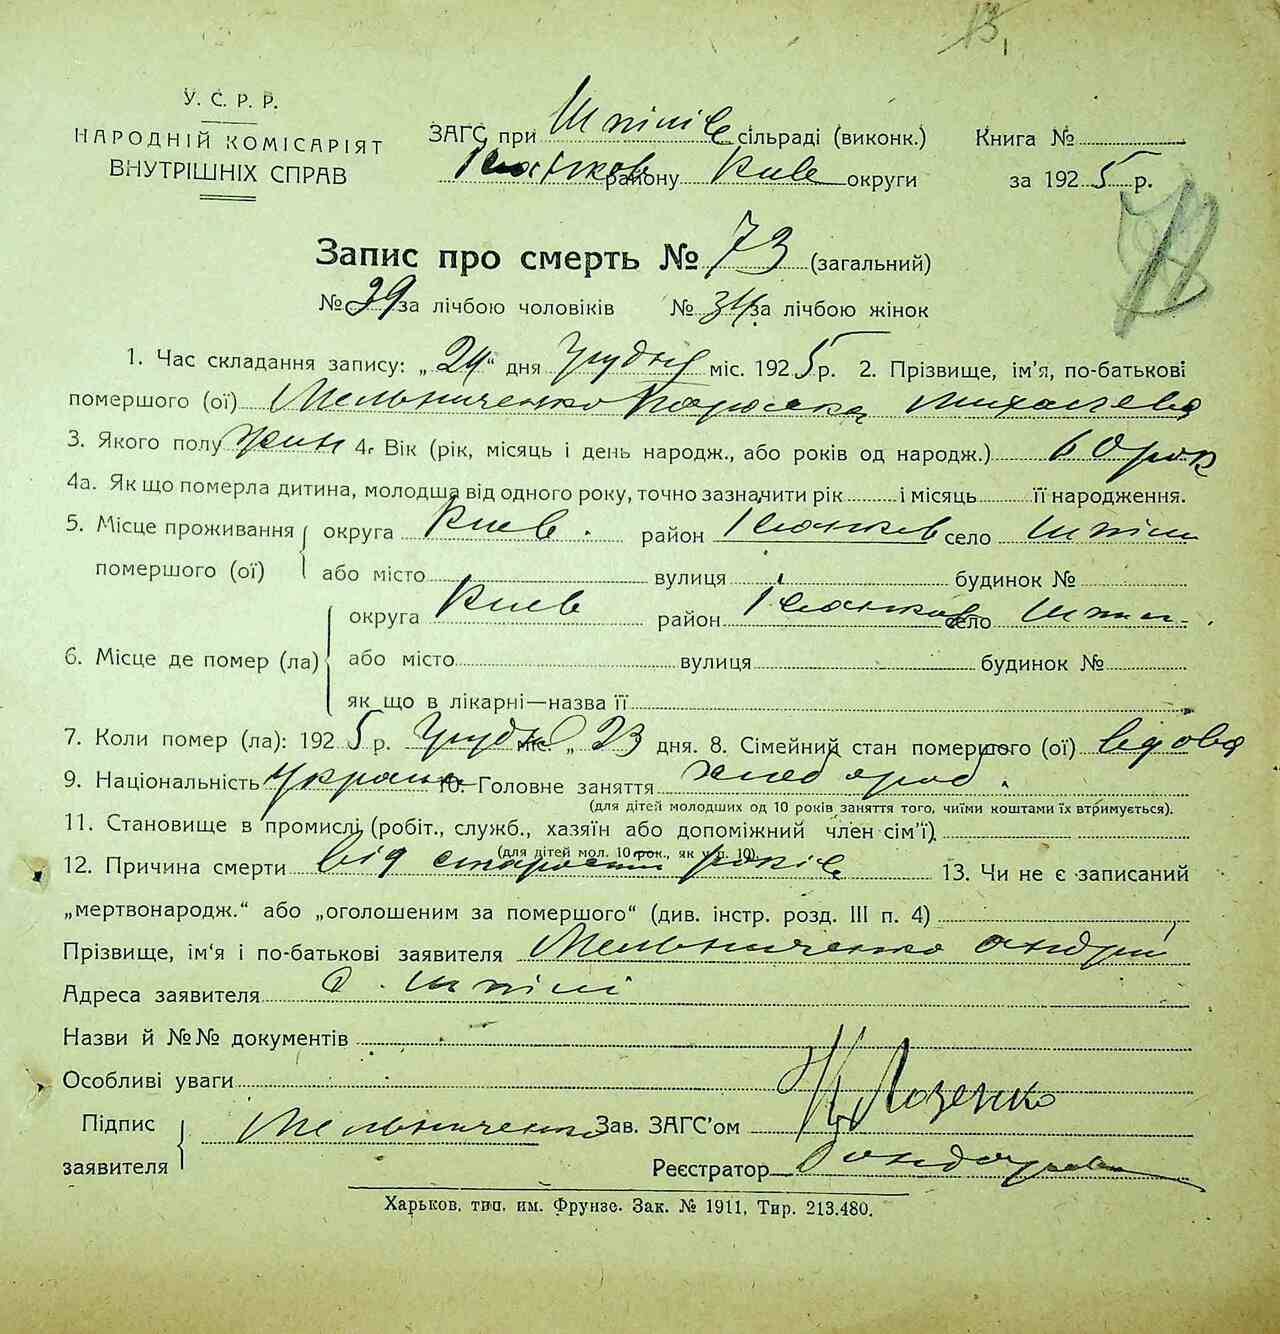 13,
У. С. Р. Р.
НАРОДНІЙ КОМІСАРІЯТ
ВНУТРІШНІХ СПРАВ
ЗАГС при Шпилів сільраді (виконк.)
району Київ округи
Книга №
за 1925 р.
Запис про смерть № 73 (загальний)
№ 39 за лічбою чоловіків № 34 за лічбою жінок
1. Час складання запису: „24" дня Грудня міс. 1925 р. 2. Прізвище, ім'я, по-батькові
помершого (ої) Мельниченко Параска Михайлева
3. Якого полу жин 4. Вік (рік, місяць і день народж., або років од народж.) 60 рок
4а. Як що померла дитина, молодша від одного року, точно зазначити рік і місяць її народження.
5. Місце проживання помершого (ої)
округа Киев. район село Шпили
або місто вулиця будинок №
6. Місце де помер (ла)
округа Киев район село Шпили
або місто вулиця будинок №
як що в лікарні—назва її
7. Коли помер (ла): 1925 р. Грудня міс. „ 23 дня. 8. Сімейний стан помершого (ої) вдова
9. Національність Україн 10. Головне заняття хлебороб.
(для дітей молодших од 10 років заняття того, чиїми коштами їх втримується).
11. Становище в промислі (робіт., служб., хазяїн або допоміжний член сім'ї)
(для дітей мол. 10 рок., як у п. 10).
12. Причина смерти від старости років 13. Чи не є записаний
„мертвонародж." або „оголошеним за помершого" (див. інстр. розд. III п. 4)
Прізвище, ім'я і по-батькові заявителя Мельниченко Андрій
Адреса заявителя с. Шпилі
Назви й №№ документів
Особливі уваги
Підпис заявителя Мельниченко
Зав. ЗАГС'ом Лозенко
Реєстратор
Харьков, тип. им. Фрунзе. Зак. № 1911, Тир. 213.480.